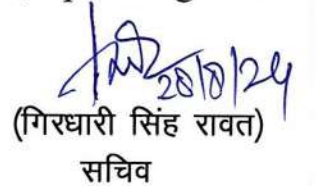 28/8/24
(गिरधारी सिंह रावत)
सचिव